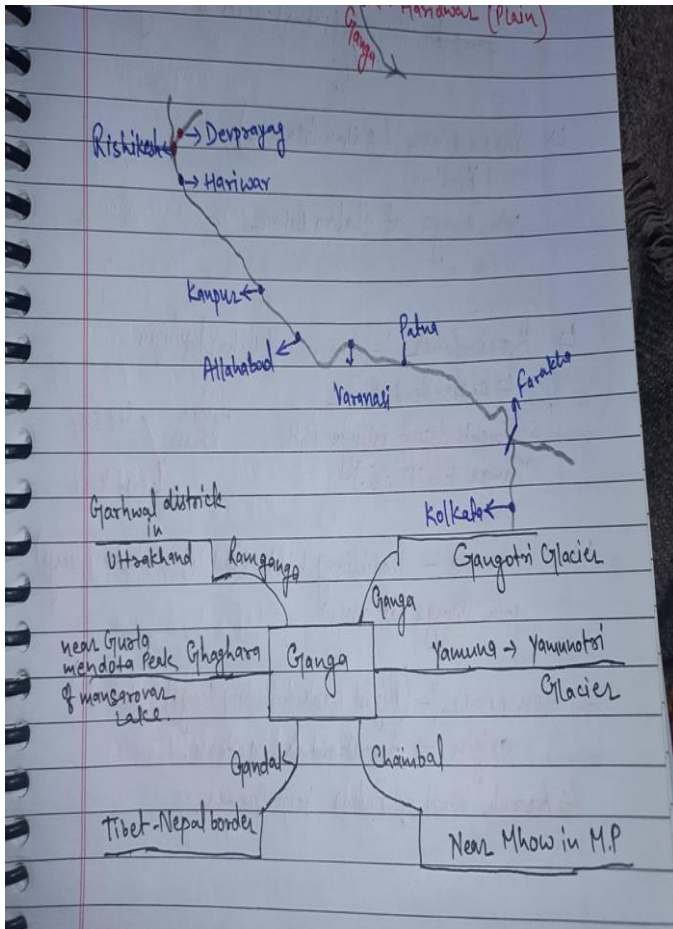 Hariawar (Plain)
Ganga
Rishikesh
Devprayag
Hariwar
Kanpur
Allahabad
Varanasi
Patna
Farakha
Kolkata
Garhwal districk
in
Uttrakhand
Ramganga
Gangotri Glacier
Ganga
near Gurla
mendota Peak
of mansarovar
Lake.
Ghaghara
Ganga
Yamuna → Yamunotri
Glacier
Gandak
Chambal
Tibet-Nepal border
Near Mhow in M.P